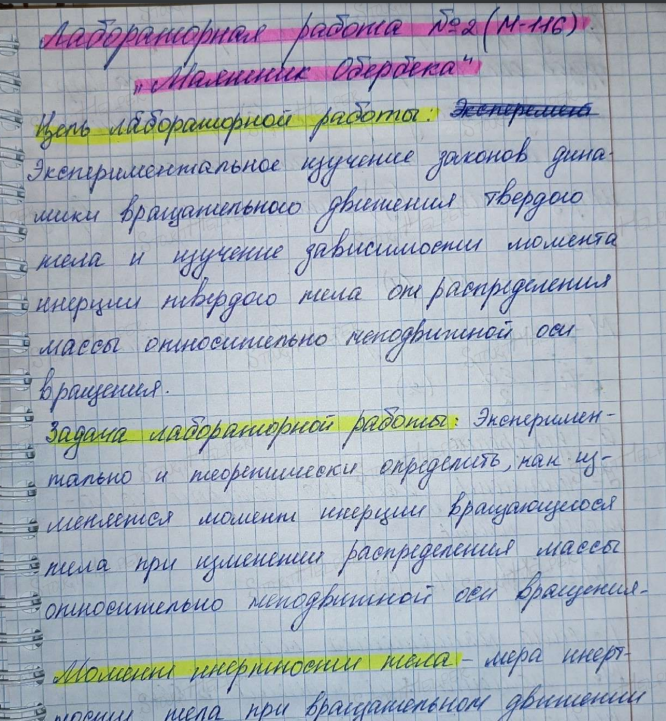 Лабораторная работа №2 (М-116).
"Маятник Обербека"
Цель лабораторной работы: Эксперемент
Экспериментальное изучение законов дина-
мики вращательного движения твердого
тела и изучение зависимости момента
инерции твердого тела от распределения
массы относительно неподвижной оси
вращения.
Задача лабораторной работы: Эксперимен-
тально и теоретически определить, как из-
меняется момент инерции вращающегося
тела при изменении распределения массы
относительно неподвижной оси вращения.
Момент инертности тела - мера инерт-
ности тела при вращательном движении